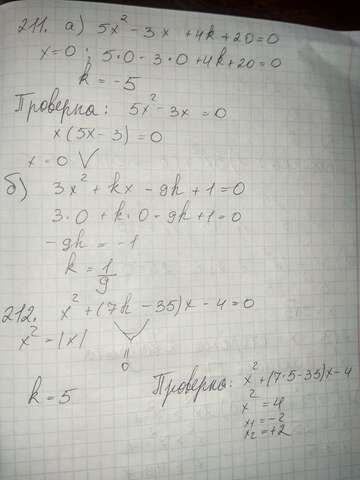 211. а) 5x² - 3x + 4k + 20 = 0
x = 0; 5·0 - 3·0 + 4k + 20 = 0
k = -5
Проверка: 5x² - 3x = 0
x(5x - 3) = 0
x = 0 V
б) 3x² + kx - 9k + 1 = 0
3·0 + k·0 - 9k + 1 = 0
-9k = -1
k = 1/9
212. x² + (7k - 35)x - 4 = 0
x² = |x|
=
0
k = 5
Проверка: x² + (7·5 - 35)x - 4
x² = 4
x₁ = -2
x₂ = +2